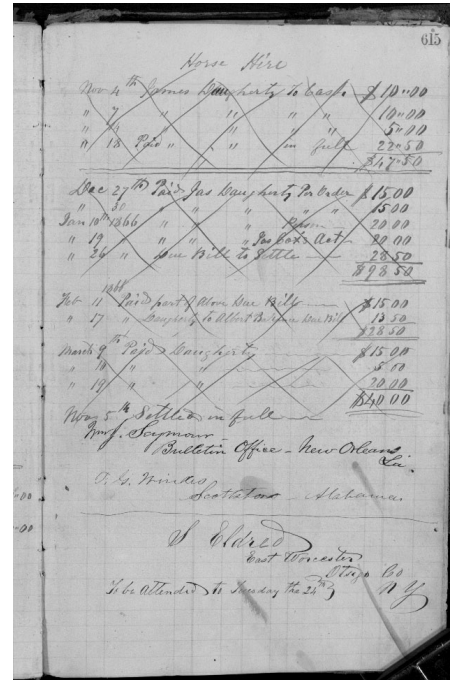 615
Horse Hire
Nov 4th James Daugherty To Cash $10"00
" 7 " " " " 10"00
" 14 " " " " 5"00
" 18 Paid " " in full 22"50
$47"50
Dec 27th Paid Jas Daugherty Per Order $15.00
" 30 " " " " 15.00
Jan 10th 1866 " " 20.00
" 19 " " Jas Act 20.00
" 26 " Due Bill to Settle 28.50
$98.50
1866
Feb 11 Paid part of Above Due Bill $15.00
" 17 " Daugherty to Albert Due Bill 13.50
$28.50
March 9th Paid Daugherty $15.00
" " " 5.00
" 19 " " 20.00
$40.00
5th Settled in full
Wm J. Seymour
Bulletin Office - New Orleans
La.
O. G.
Alabama
S Eldred
East Worcester
Otsego Co
N Y
To be Attended to Tuesday the 24th
"00
"00